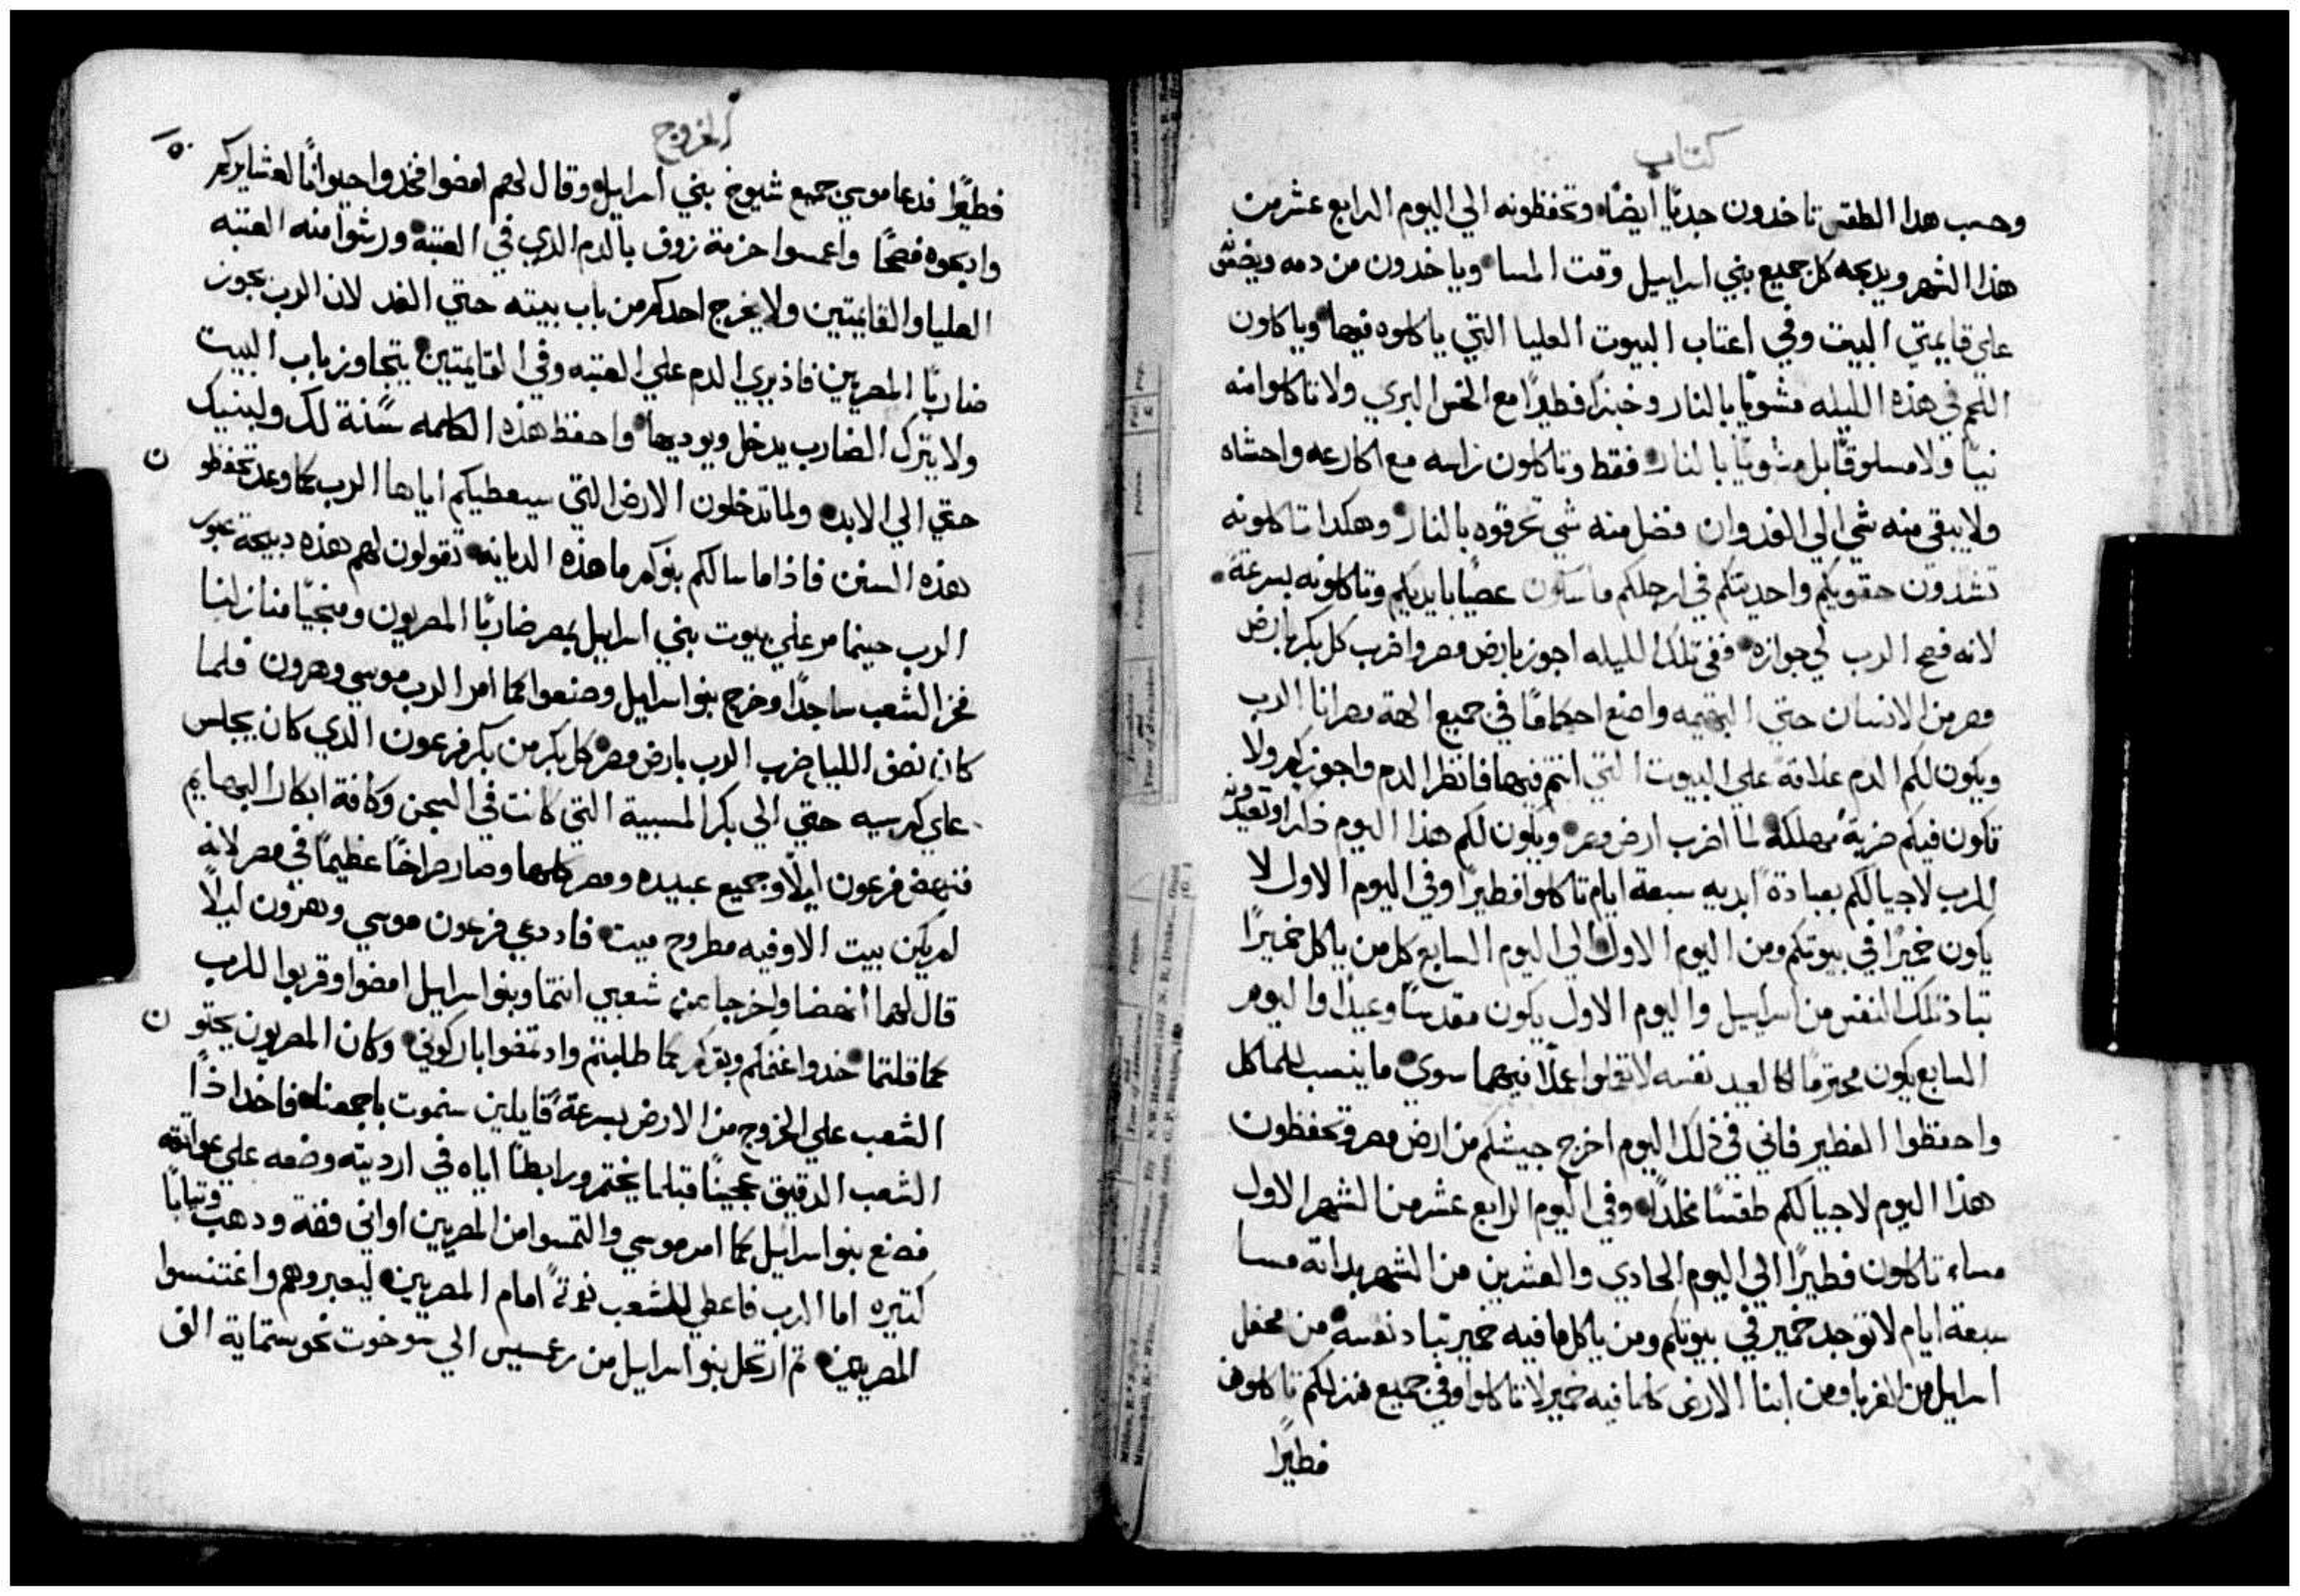 كتاب
وحسب هدا الطقس تاخدون جديًا ايضًا وتحفظونه الي اليوم الرابع عشر من
هذا الشهر ويدبحه كل جميع بني اسراييل وقت المسا وياخدون من دمه ويضعون
علي قايمتي البيت وفي اعتاب البيوت العليا التي ياكلوه فيها وياكلون
اللحم في هذه الليله مشويًا بالنار وخبزًا فطيرًا مع الخس البري ولا تاكلوا منه
نيًا ولا مسلوقًا بل مشويًا بالنار فقط وتاكلون راسه مع اكارعه واحشاه
ولا يبقي منه شي الي الغد وان فضل منه شي تحرقوه بالنار وهكدا تاكلونه
تشدون حقويكم واحديتكم في ارجلكم ماسكون عصيًا بايديكم وتاكلونه بسرعة
لانه فصح الرب اي جوازه ففي تلك الليله اجوز بارض مصر واضرب كل بكر بارض
مصر من الانسان حتي البهيمه واصنع احكامًا في جميع الهة مصر انا الرب
ويكون لكم الدم علامة علي البيوت التي انتم فيها فانظر الدم واجوزكم ولا
تكون فيكم ضربة مهلكة لما اضرب ارض مصر ويكون لكم هذا اليوم ذكرا وتعيدونه
للرب لاجيالكم بعبادة ابديه سبعة ايام تاكلوا فطيرًا وفي اليوم الاول لا
يكون خميرًا في بيوتكم ومن اليوم الاول الي اليوم السابع كل من ياكل خميرًا
تباد تلك النفس من اسراييل واليوم الاول يكون مقدسًا وعيدًا واليوم
السابع يكون محترمًا كالعيد نفسه لا تعملوا عملًا فيهما سوي ما ينسب للماكل
واحفظوا الفطير فاني في ذلك اليوم اخرج جيشكم من ارض مصر وتحفظون
هذا اليوم لاجيالكم طقسًا مخلدًا وفي اليوم الرابع عشر من الشهر الاول
مساء تاكلون فطيرًا الي اليوم الحادي والعشرين من الشهر بداته مسا
سبعة ايام لا توجد خمير في بيوتكم ومن ياكل ما فيه خمير تباد نفسه من محفل
اسراييل من الغربا ومن ابنا الارض كلما فيه خمير لا تاكلوا وفي جميع منزلكم تاكلون
فطيرًا
الخروج
١٥٠
فطيرًا فدعا موسي جميع شيوخ بني اسراييل وقال لهم امضوا فخدوا حيوانًا لعشايركم
وادبحوه فصحًا واغمسوا حزمة زوف بالدم الدي في العتبة ورشوا منه العتبه
العليا والقايمتين ولا يخرج احدكم من باب بيته حتي الغد لان الرب يجوز
ضاربًا المصريين فاذ يري الدم علي العتبه وفي القايمتين يتجاوز باب البيت
ولا يترك الضارب يدخل ويوديها واحفظ هذه الكلمه سنة لك ولبنيك
حتي الي الابد ولما تدخلون الارض التي سيعطيكم اياها الرب كما وعد تحفظو
ن
هذه السنن فاذا ما سالكم بنوكم ما هذه الديانه تقولون لهم هذه دبيحة عبور
الرب حينما مر علي بيوت بني اسراييل بمصر ضاربًا المصريون ومنجيًا منازلنا
فخر الشعب ساجدًا وخرج بنو اسراييل وصنعوا كما امر الرب موسي وهرون فلما
كان نصف الليل ضرب الرب بارض مصر كل بكر من بكر فرعون الدي كان يجلس
علي كرسيه حتي الي بكر المسبية التي كانت في السجن وكافة ابكار البهايم
فنهض فرعون ليلًا وجميع عبيده ومصر كلها وصار صراخًا عظيمًا في مصر لانه
لم يكن بيت الا وفيه مطروح ميت فاد دعي فرعون موسي وهرون ليلًا
قال لهما انهضا واخرجا من شعبي انتما وبنو اسراييل امضوا وقربوا للرب
كما قلتما خدوا غنمكم وبقركم كما طلبتم واد تمضوا باركوني وكان المصريون يحتو
ن
الشعب علي الخروج من الارض بسرعة قايلين سنموت باجمعنا فاخد اذًا
الشعب الدقيق عجينًا قبلما يختمر ورابطًا اياه في ارديته وضعه علي عواتقه
فصنع بنو اسراييل كما امر موسي والتمسوا من المصريين اواني فضة ودهب وتيابًا
كتيره اما الرب فاعطي للشعب نعمةً امام المصريين ليعيروهم واغتنسوا
المصريين تم ارتحل بنو اسراييل من رعمسيس الي سوخوت نحو ستماية الف